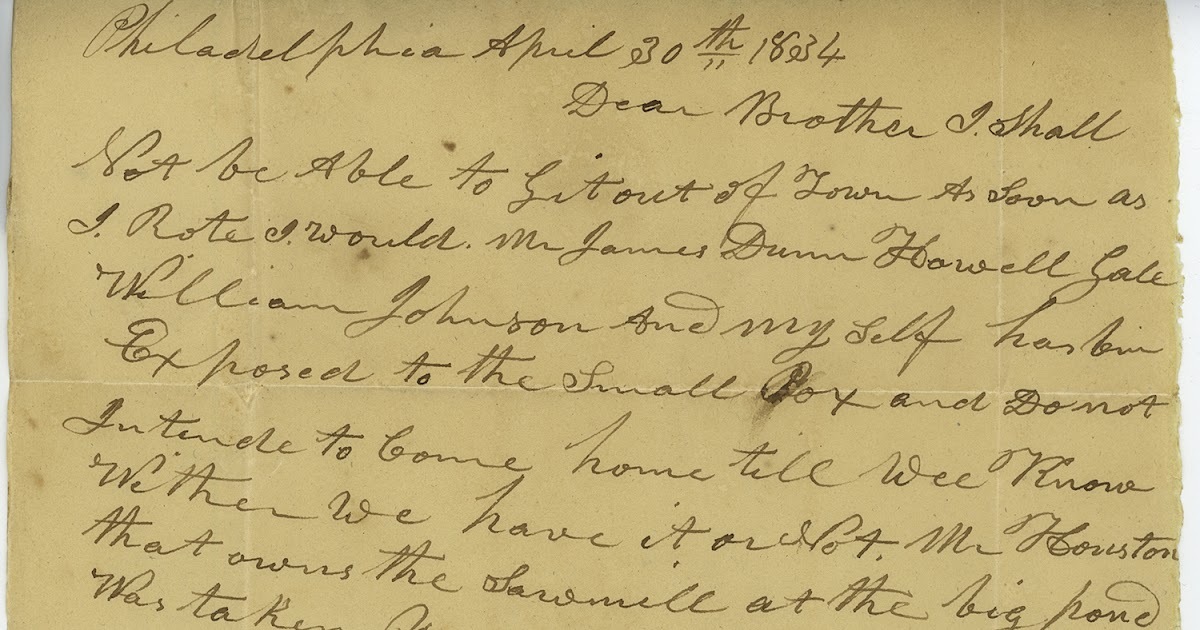 Philadelphia April 30th 1834
Dear Brother I. Shall
Not be Able to Git out of Town As Soon as
I. Rote I. would. Mr James Dunn Howell Gale
William Johnson And my Self has bin
Exposed to the Small Pox and Do not
Intende to Come home till Wee Know
Wither We have it or Not. Mr Houston
that owns the Sawmill at the big pond
Was taken